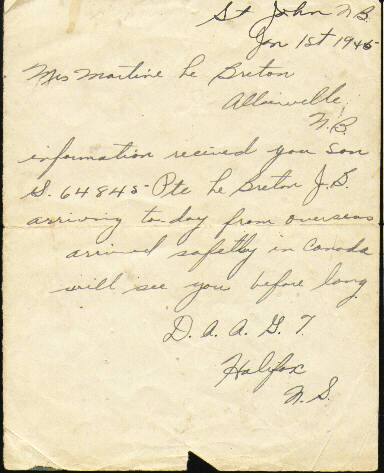 St John N.B.
Jan 1st 1945
Mrs Martine Le Breton
Allainville
N.B
information recived you son
G. 64845 Pte Le Breton J.S.
arriving to-day from overseas
arived safetly in Canada
will see you before long
D. A. A. G. T.
Halifax
N. S.